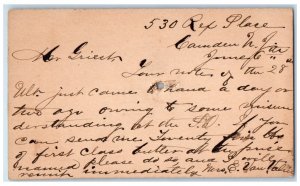 530 Rex Place
Camden N. J.
Mr Griest June 6
Your note of the 28"
Ult just came to hand a day or
two ago owing to some misun
derstanding at the P.O. If you
can send me Twenty lbs
of first class butter at the price
named please do so, and I will
remit immediately Mrs E.